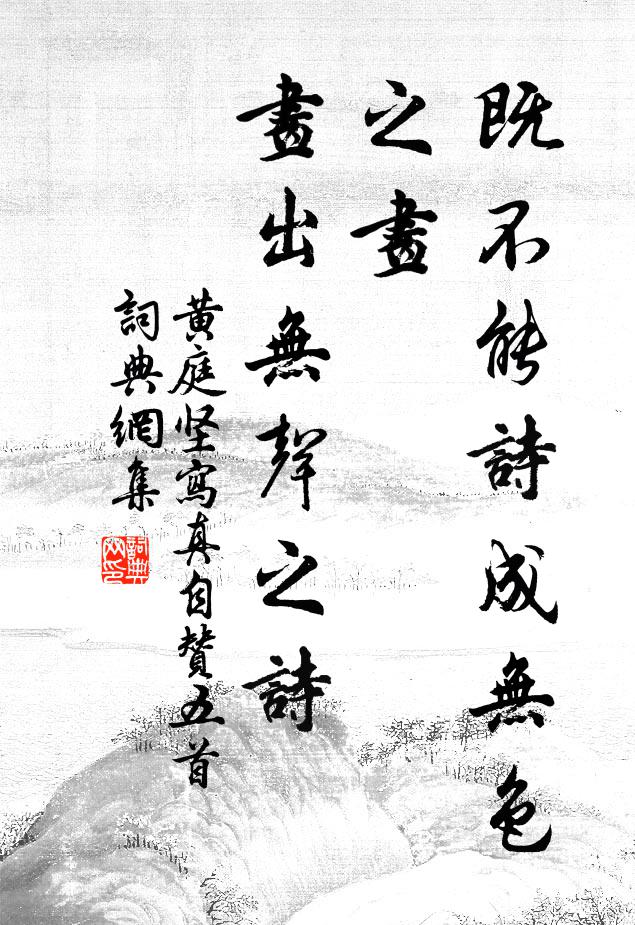 既不能詩成無色
之畫
畫出無聲之詩
黄庭坚寫真自赞五首
詞典網集
詞典
网印